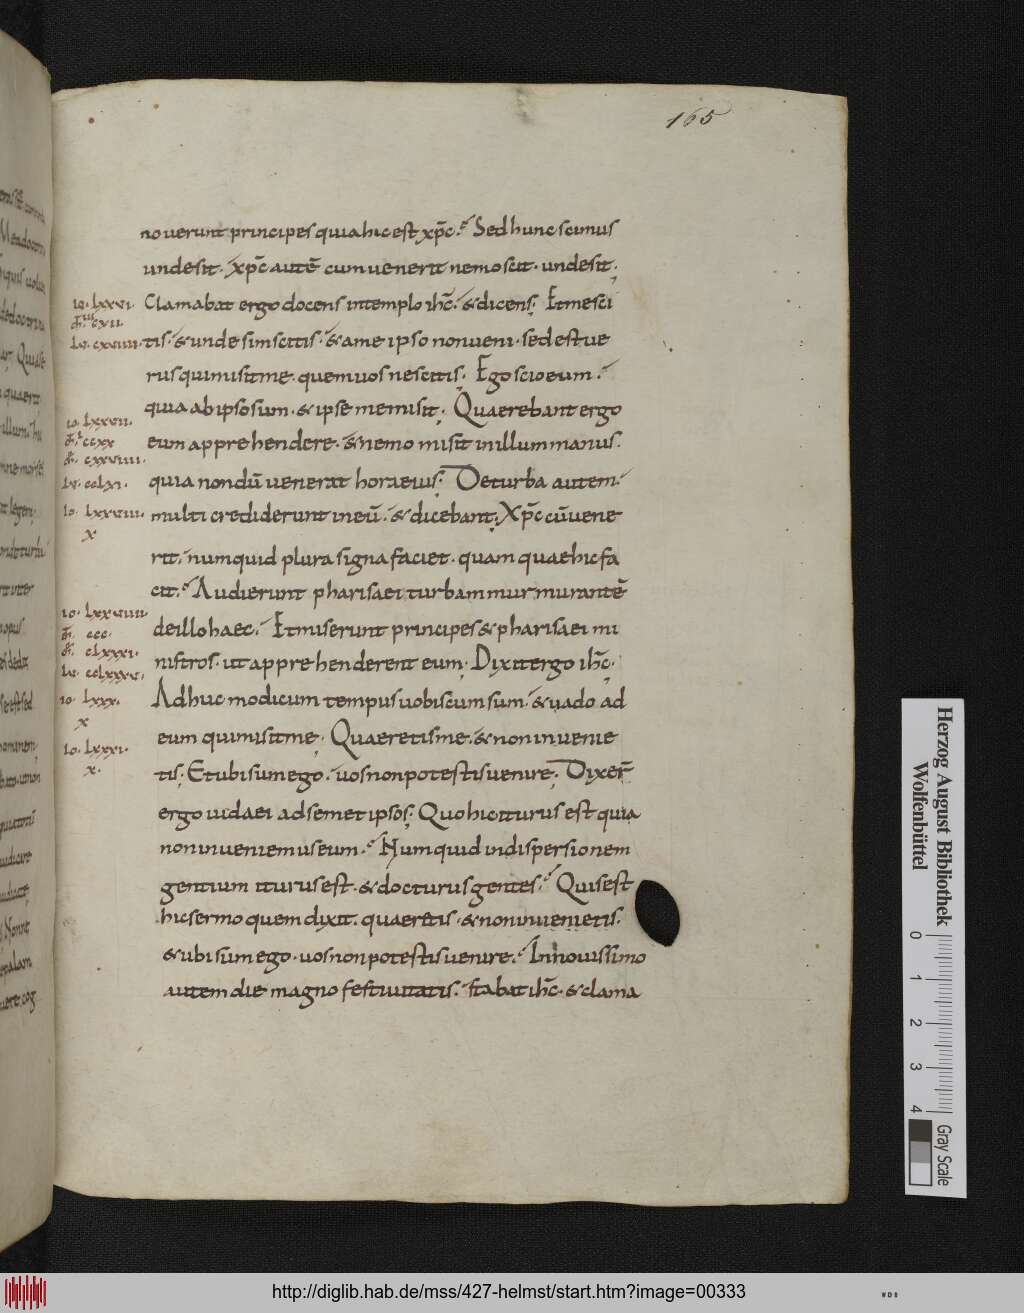 165
nouerunt principes quia hic est xp̄c. Sed hunc scimus
unde sit. xp̄c autē cum uenerit nemo scit. unde sit;
Clamabat ergo docens in templo ih̄c. & dicens; Et me sci
tis. & unde sim scitis. & a me ipso non ueni. sed est ue
rus qui misit me. quem uos nescitis; Ego scio eum.
quia ab ipso sum. & ipse me misit; Quaerebant ergo
eum apprehendere. & nemo misit in illum manus.
quia nondū uenerat hora eius; De turba autem.
multi crediderunt in eū. & dicebant; Xp̄c cū uene
rit. numquid plura signa faciet. quam quae hic fa
cit. Audierunt pharisaei turbam murmurantē
de illo haec. Et miserunt principes & pharisaei mi
nistros. ut apprehenderent eum; Dixit ergo ih̄c;
Adhuc modicum tempus uobiscum sum. & uado ad
eum qui misit me; Quaeretis me. & non inuenie
tis; Et ubi sum ego. uos non potestis uenire; Dixer̄
ergo iudaei ad semet ipsos; Quo hic iturus est quia
non inueniemus eum. Numquid in dispersionem
gentium iturus est. & docturus gentes. Quis est
hic sermo quem dixit. quaeretis. & non inuenietis.
& ubi sum ego. uos non potestis uenire. In nouissimo
autem die magno festiuitatis. stabat ih̄c. & clama
io. lxxvi.
io. lxxvii.
ccxx
lu. cclxi.
io. lxxviii.
x
io. lxxviiii.
ccc.
clxxxi.
lu. cclxxxv.
io. lxxx.
x
io. lxxxi.
x.
Herzog August Bibliothek
Wolfenbüttel
0 1 2 3 4
Gray Scale
http://diglib.hab.de/mss/427-helmst/start.htm?image=00333